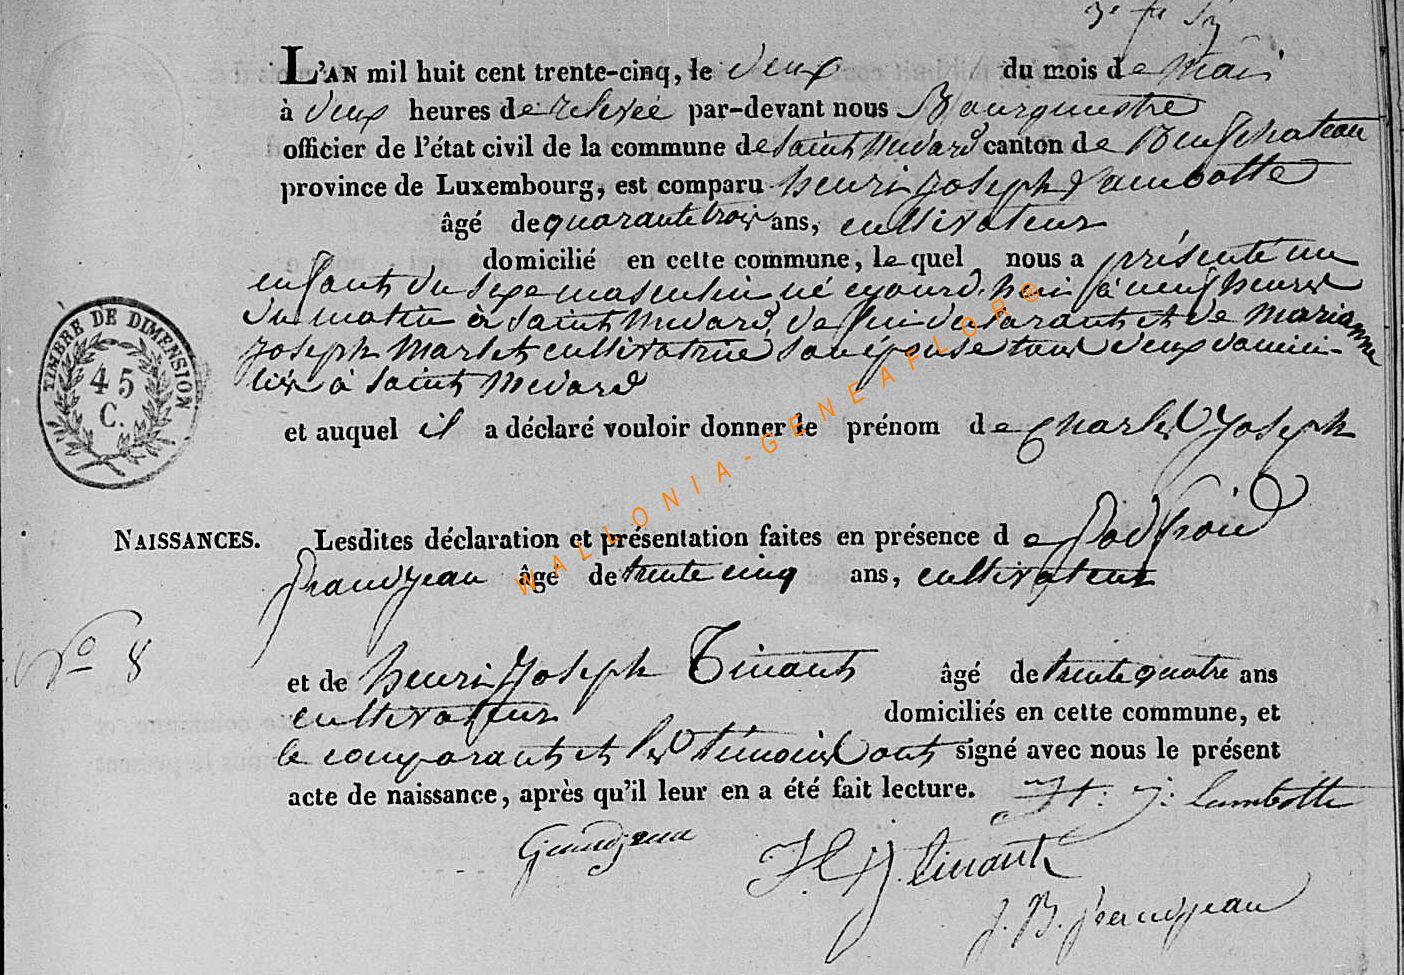 L'AN mil huit cent trente-cinq, le deux du mois de mai
à deux heures de relevée par-devant nous Bourguestre
officier de l'état civil de la commune de Saint Médard canton de Neufchateau
province de Luxembourg, est comparu henri joseph Lambotte
âgé de quarante trois ans, cultivateur
domicilié en cette commune, le quel nous a présenté un
enfant du sexe masculin né cejourd'hui à neuf heures
du matin à Saint Médard, de lui déclarant et de marianne
joseph Marlet cultivatrice son épouse tous deux domici-
liés à Saint Médard
et auquel il a déclaré vouloir donner le prénom de Charles Joseph
NAISSANCES.
Lesdites déclaration et présentation faites en présence de Godfroid
grandjean âgé de trente cinq ans, cultivateur
No 8
et de henri Joseph Tinant âgé de trente quatre ans
cultivateur domiciliés en cette commune, et
le comparant et les témoins ont signé avec nous le présent
acte de naissance, après qu'il leur en a été fait lecture. H. j. lambotte
Grandjean
H J tinant
J. B. grandjean
TIMBRE DE DIMENSION
45
C.
WALLONIA-GENEAFLOR®